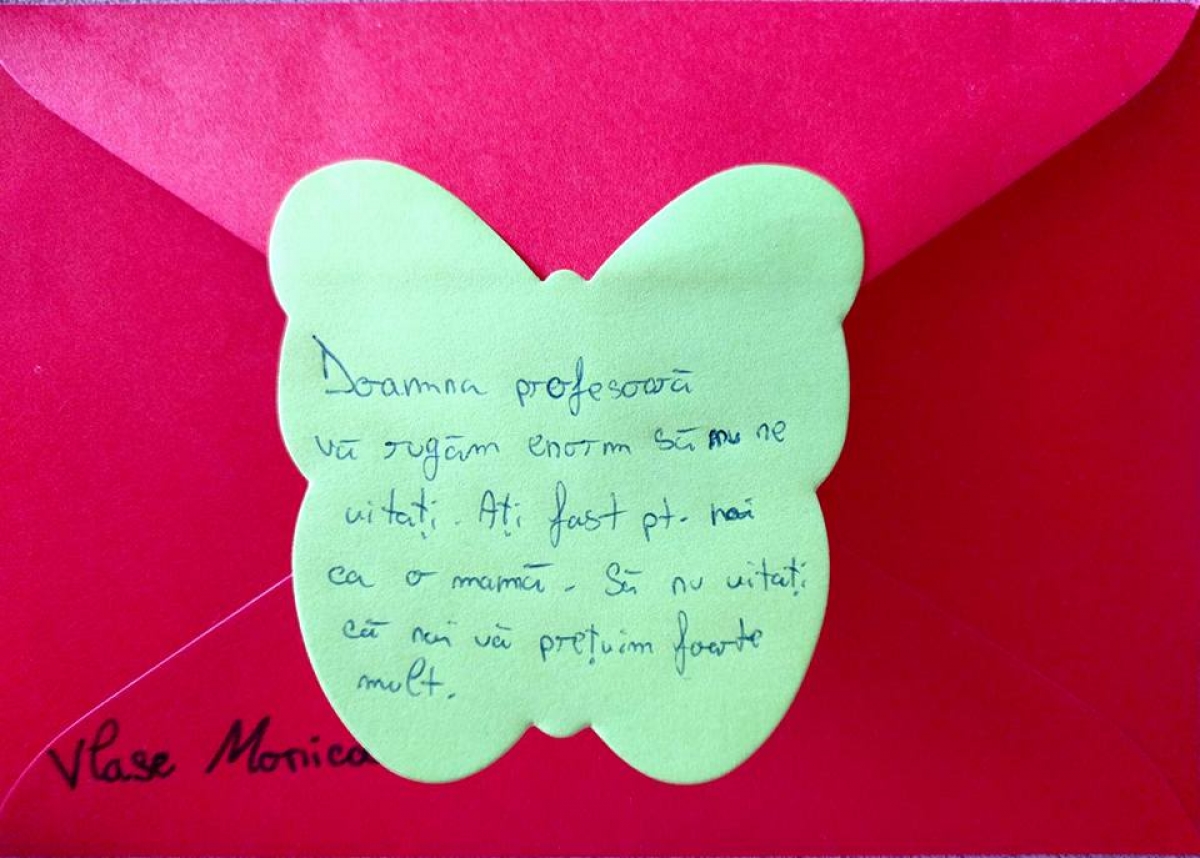 Doamna profesoară
vă rugăm enorm să nu ne
uitați. Ați fost pt. noi
ca o mamă. Să nu uitați
că noi vă prețuim foarte
mult.
Vlase Monica